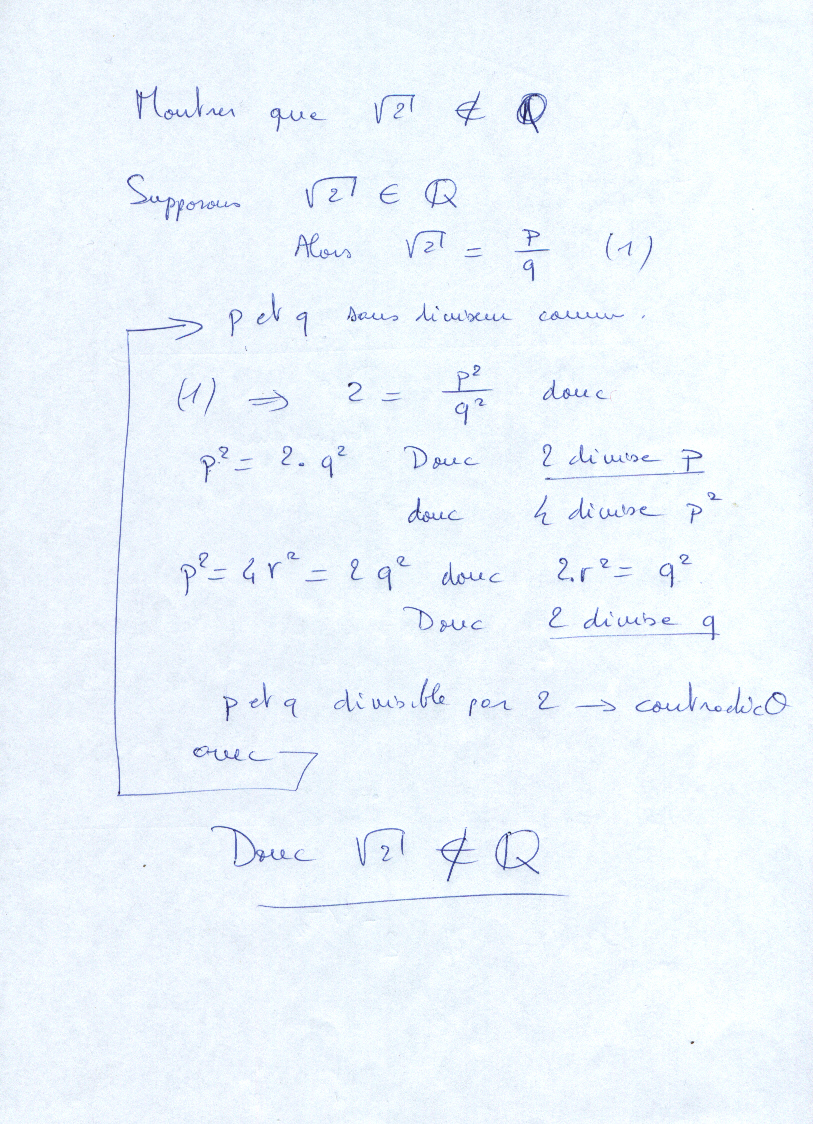 Montrer que √2 ∉ ℚ
Supposons √2 ∈ ℚ
Alors √2 = p/q (1)
p et q sans diviseur commun.
(1) ⇒ 2 = p²/q² donc
p² = 2. q² Donc 2 divise p
donc 4 divise p²
p² = 4 r² = 2 q² donc 2.r² = q²
Donc 2 divise q
p et q divisible par 2 → contradict⁰
avec
Donc √2 ∉ ℚ